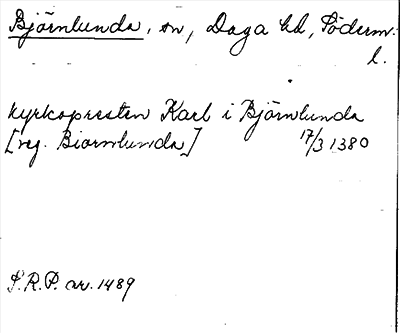 Björnlunda, sn, Daga hd, Söderm.
l.
kyrkopresten Karl i Björnlunda
[reg. Biornlunda] 17/3 1380
S.R.P. nr. 1489